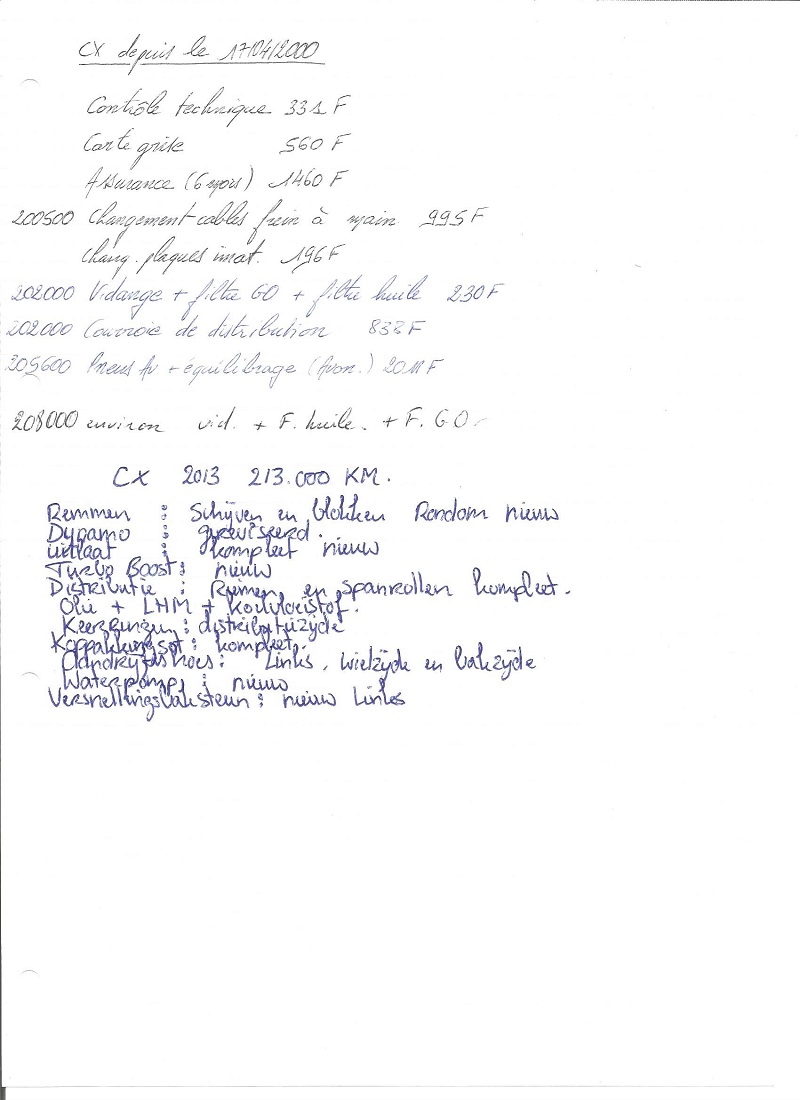 CX depuis le 17/04/2000
Contrôle technique 331 F
Carte grise 560 F
Assurance (6 mois) 1460 F
200500 Changement cables frein à main 995 F
Chang. plaques imat. 196 F
202000 Vidange + filtre GO + filtre huile 230 F
202000 Courroie de distribution 838 F
205600 Pneus Av + équilibrage (Avon.) 2011 F
208000 environ vid. + F. huile. + F. GO
CX 2013 213.000 KM.
Remmen : Schijven en blokken Rondom nieuw
Dynamo : gereviseerd.
uitlaat : kompleet nieuw
Turbo Boost : nieuw
Distributie : Riemen, en spanrollen kompleet.
Olie + LHM + koelvloeistof.
Keerringen : distributiezijde
Koppakkingset : kompleet,
Aandrijfashoes : Links, wielzijde en bakzijde
Waterpomp : nieuw
Versnellingsbaksteun : nieuw Links